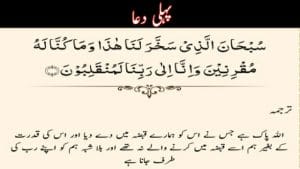 پہلی دعا
سُبْحَانَ الَّذِیْ سَخَّرَ لَنَا هٰذَا وَمَا كُنَّا لَهٗ
مُقْرِنِیْنَ وَاِنَّا اِلٰی رَبِّنَا لَمُنْقَلِبُوْنَ
ترجمہ
اللہ پاک ہے جس نے اس کو ہمارے قبضہ میں دے دیا اور اس کی قدرت
کے بغیر ہم اسے قبضہ میں کرنے والے نہ تھے اور بلا شبہ ہم کو اپنے رب کی
طرف جانا ہے